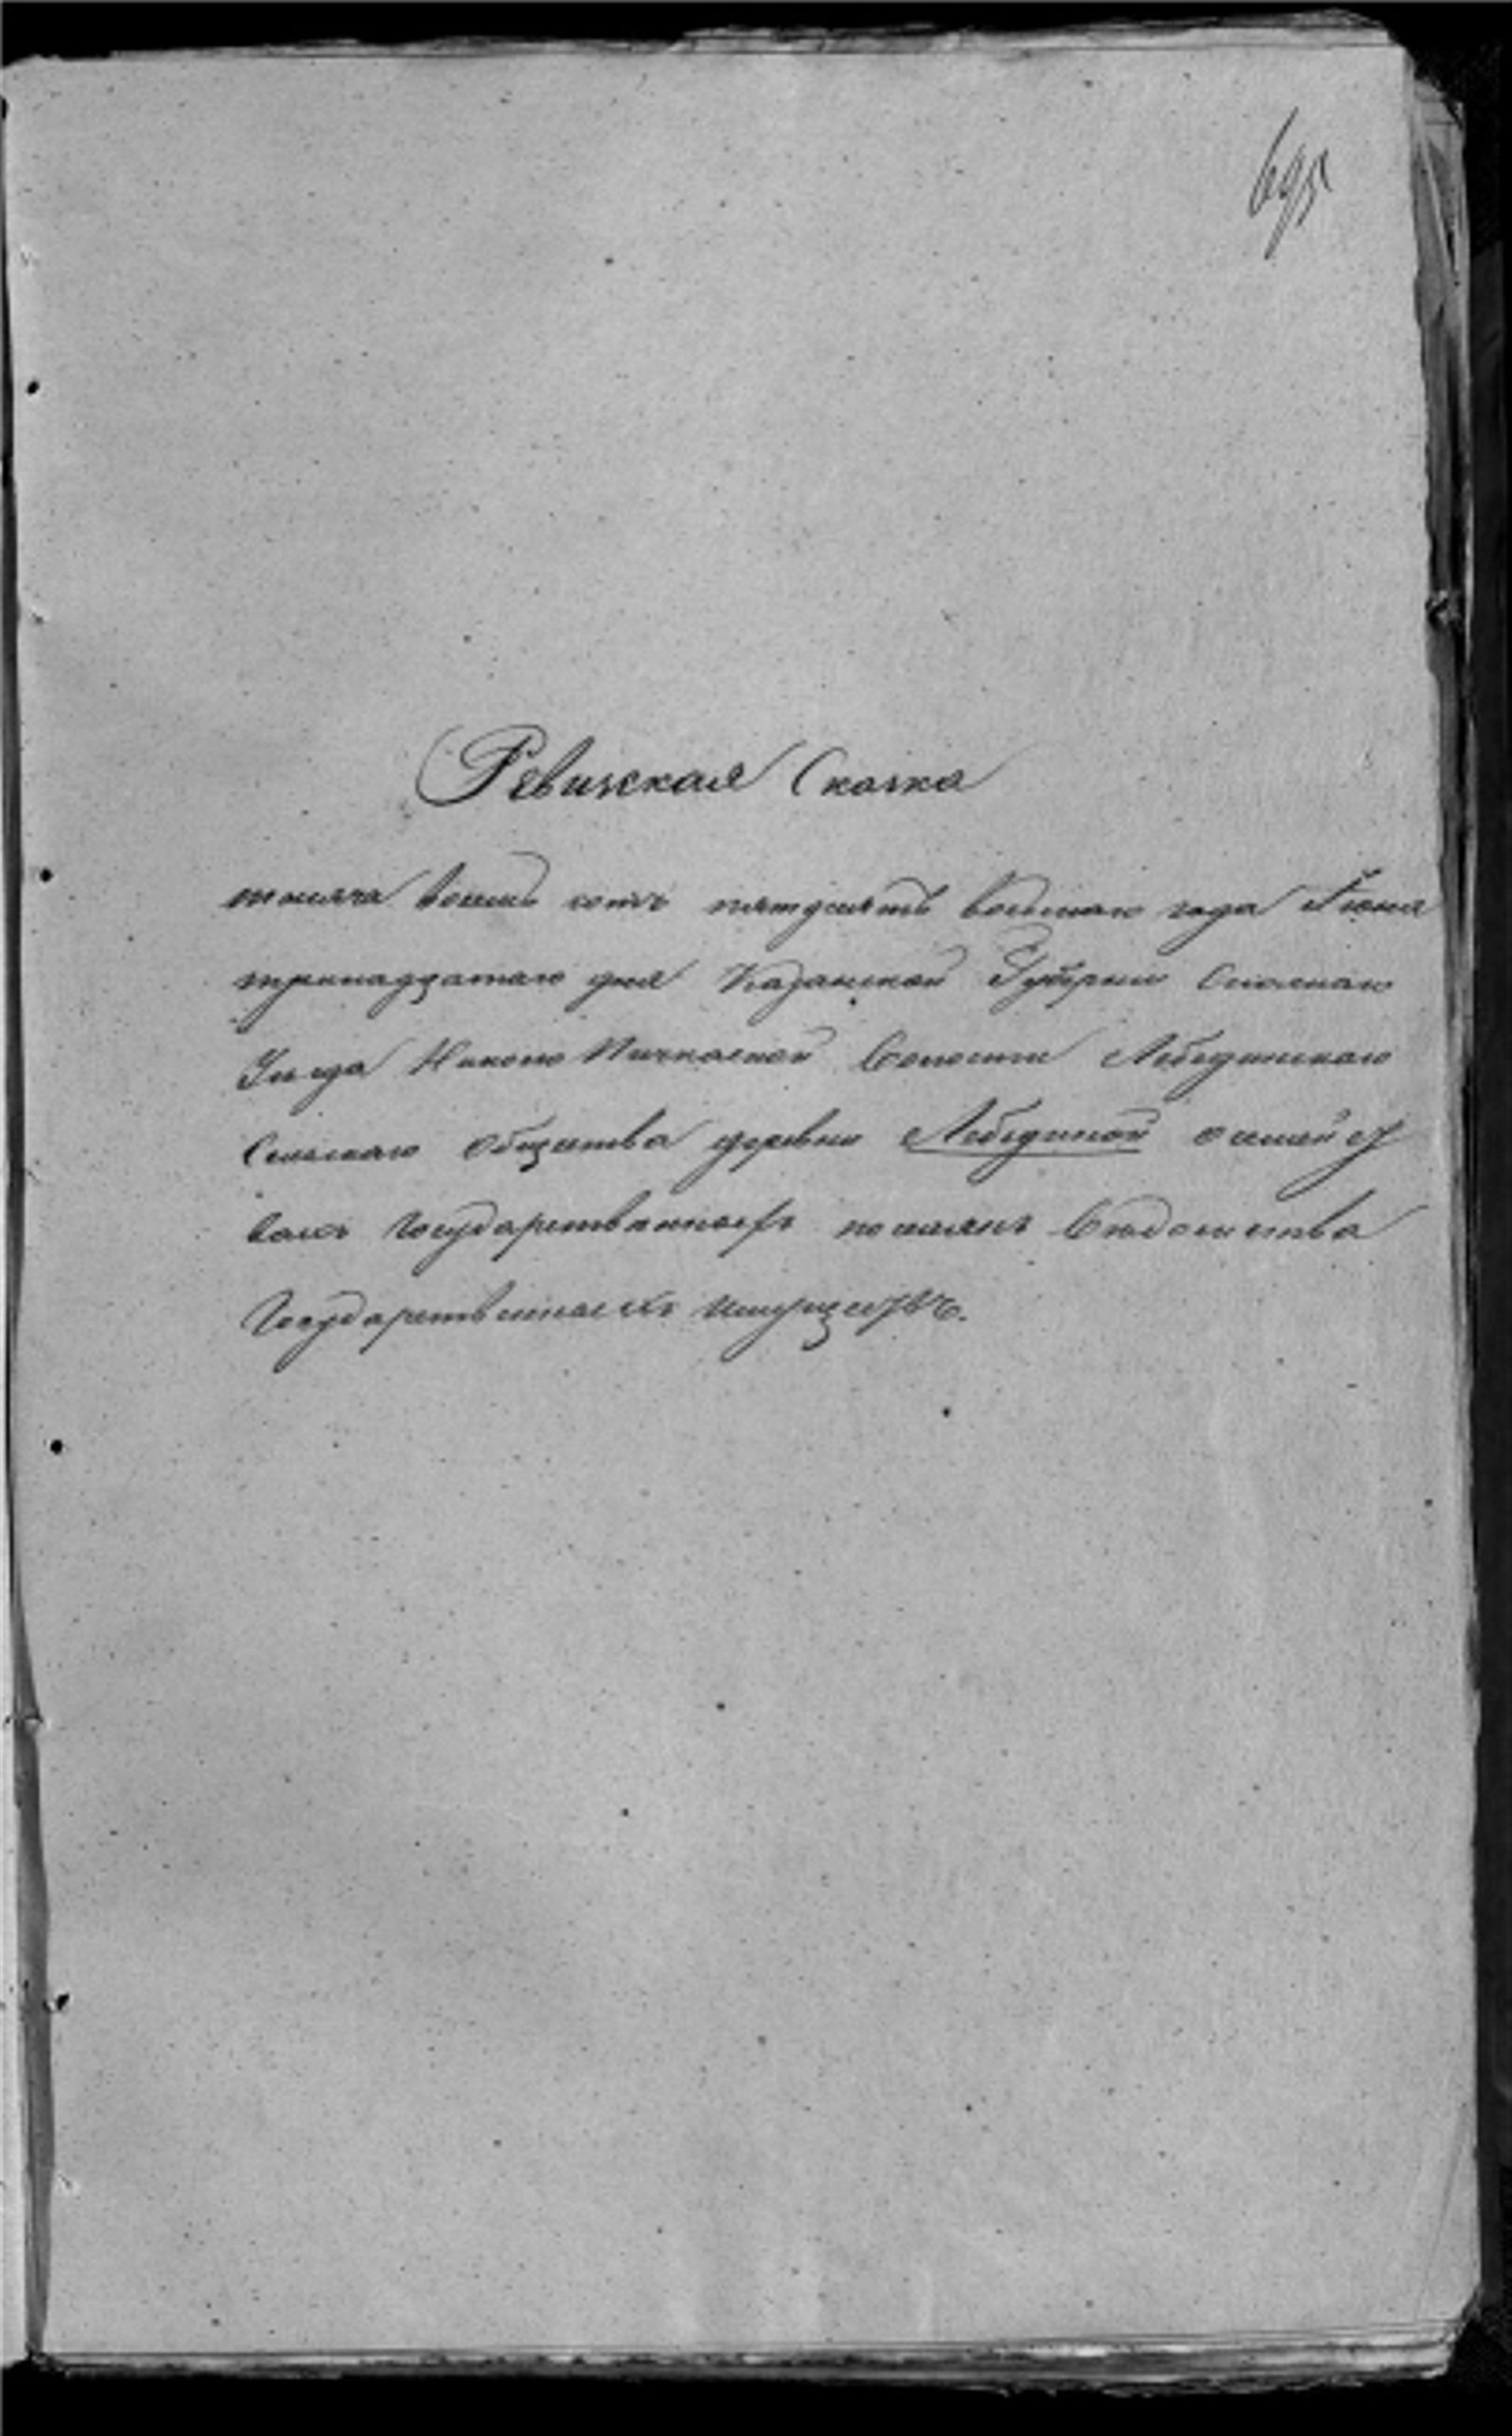 695
Ревизская Сказка
тысяча восемь сотъ пятдесятъ восьмаго года Июня
тринадцатаго дня Казанской Губерніи Спаскаго
Уезда Николо Пичкаской Волости Лебединскаго
Сельскаго Общества деревни Лебединой о
Государственныхъ поселянъ Ведомства
Государственныхъ Имуществъ.